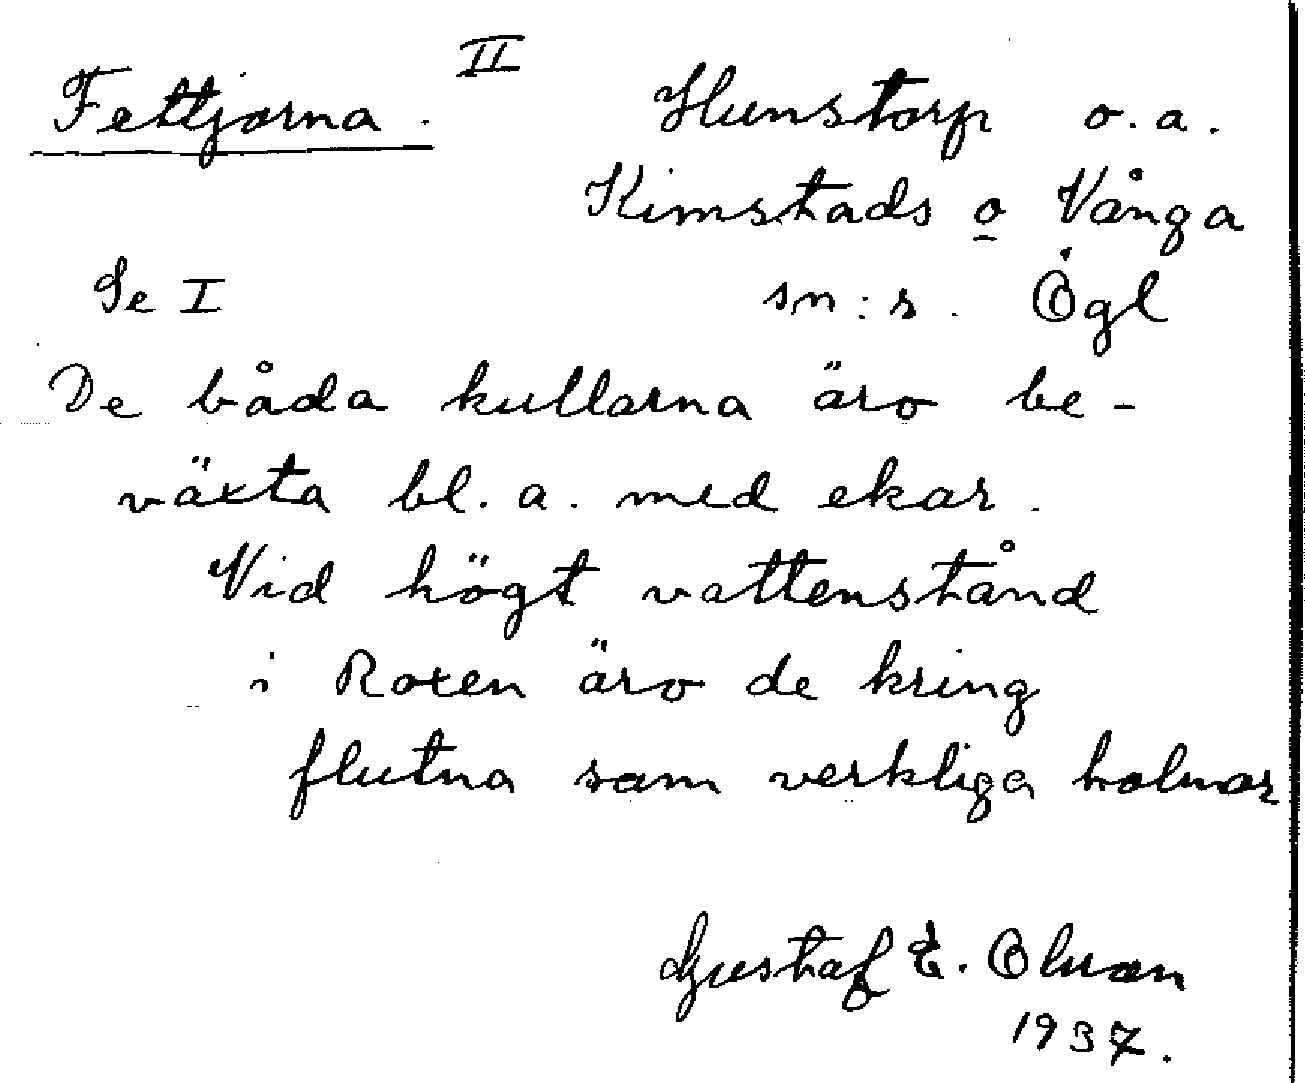 II
Fettjorna. Hunstorp o.a.
Kimstads o Vånga
Se I sn:s. Ögl
De båda kullarna äro be-
växta bl. a. med ekar.
Vid högt vattenstånd
i Roxen äro de kring
flutna som verkliga holmar
Gustaf E. Olsson
1937.